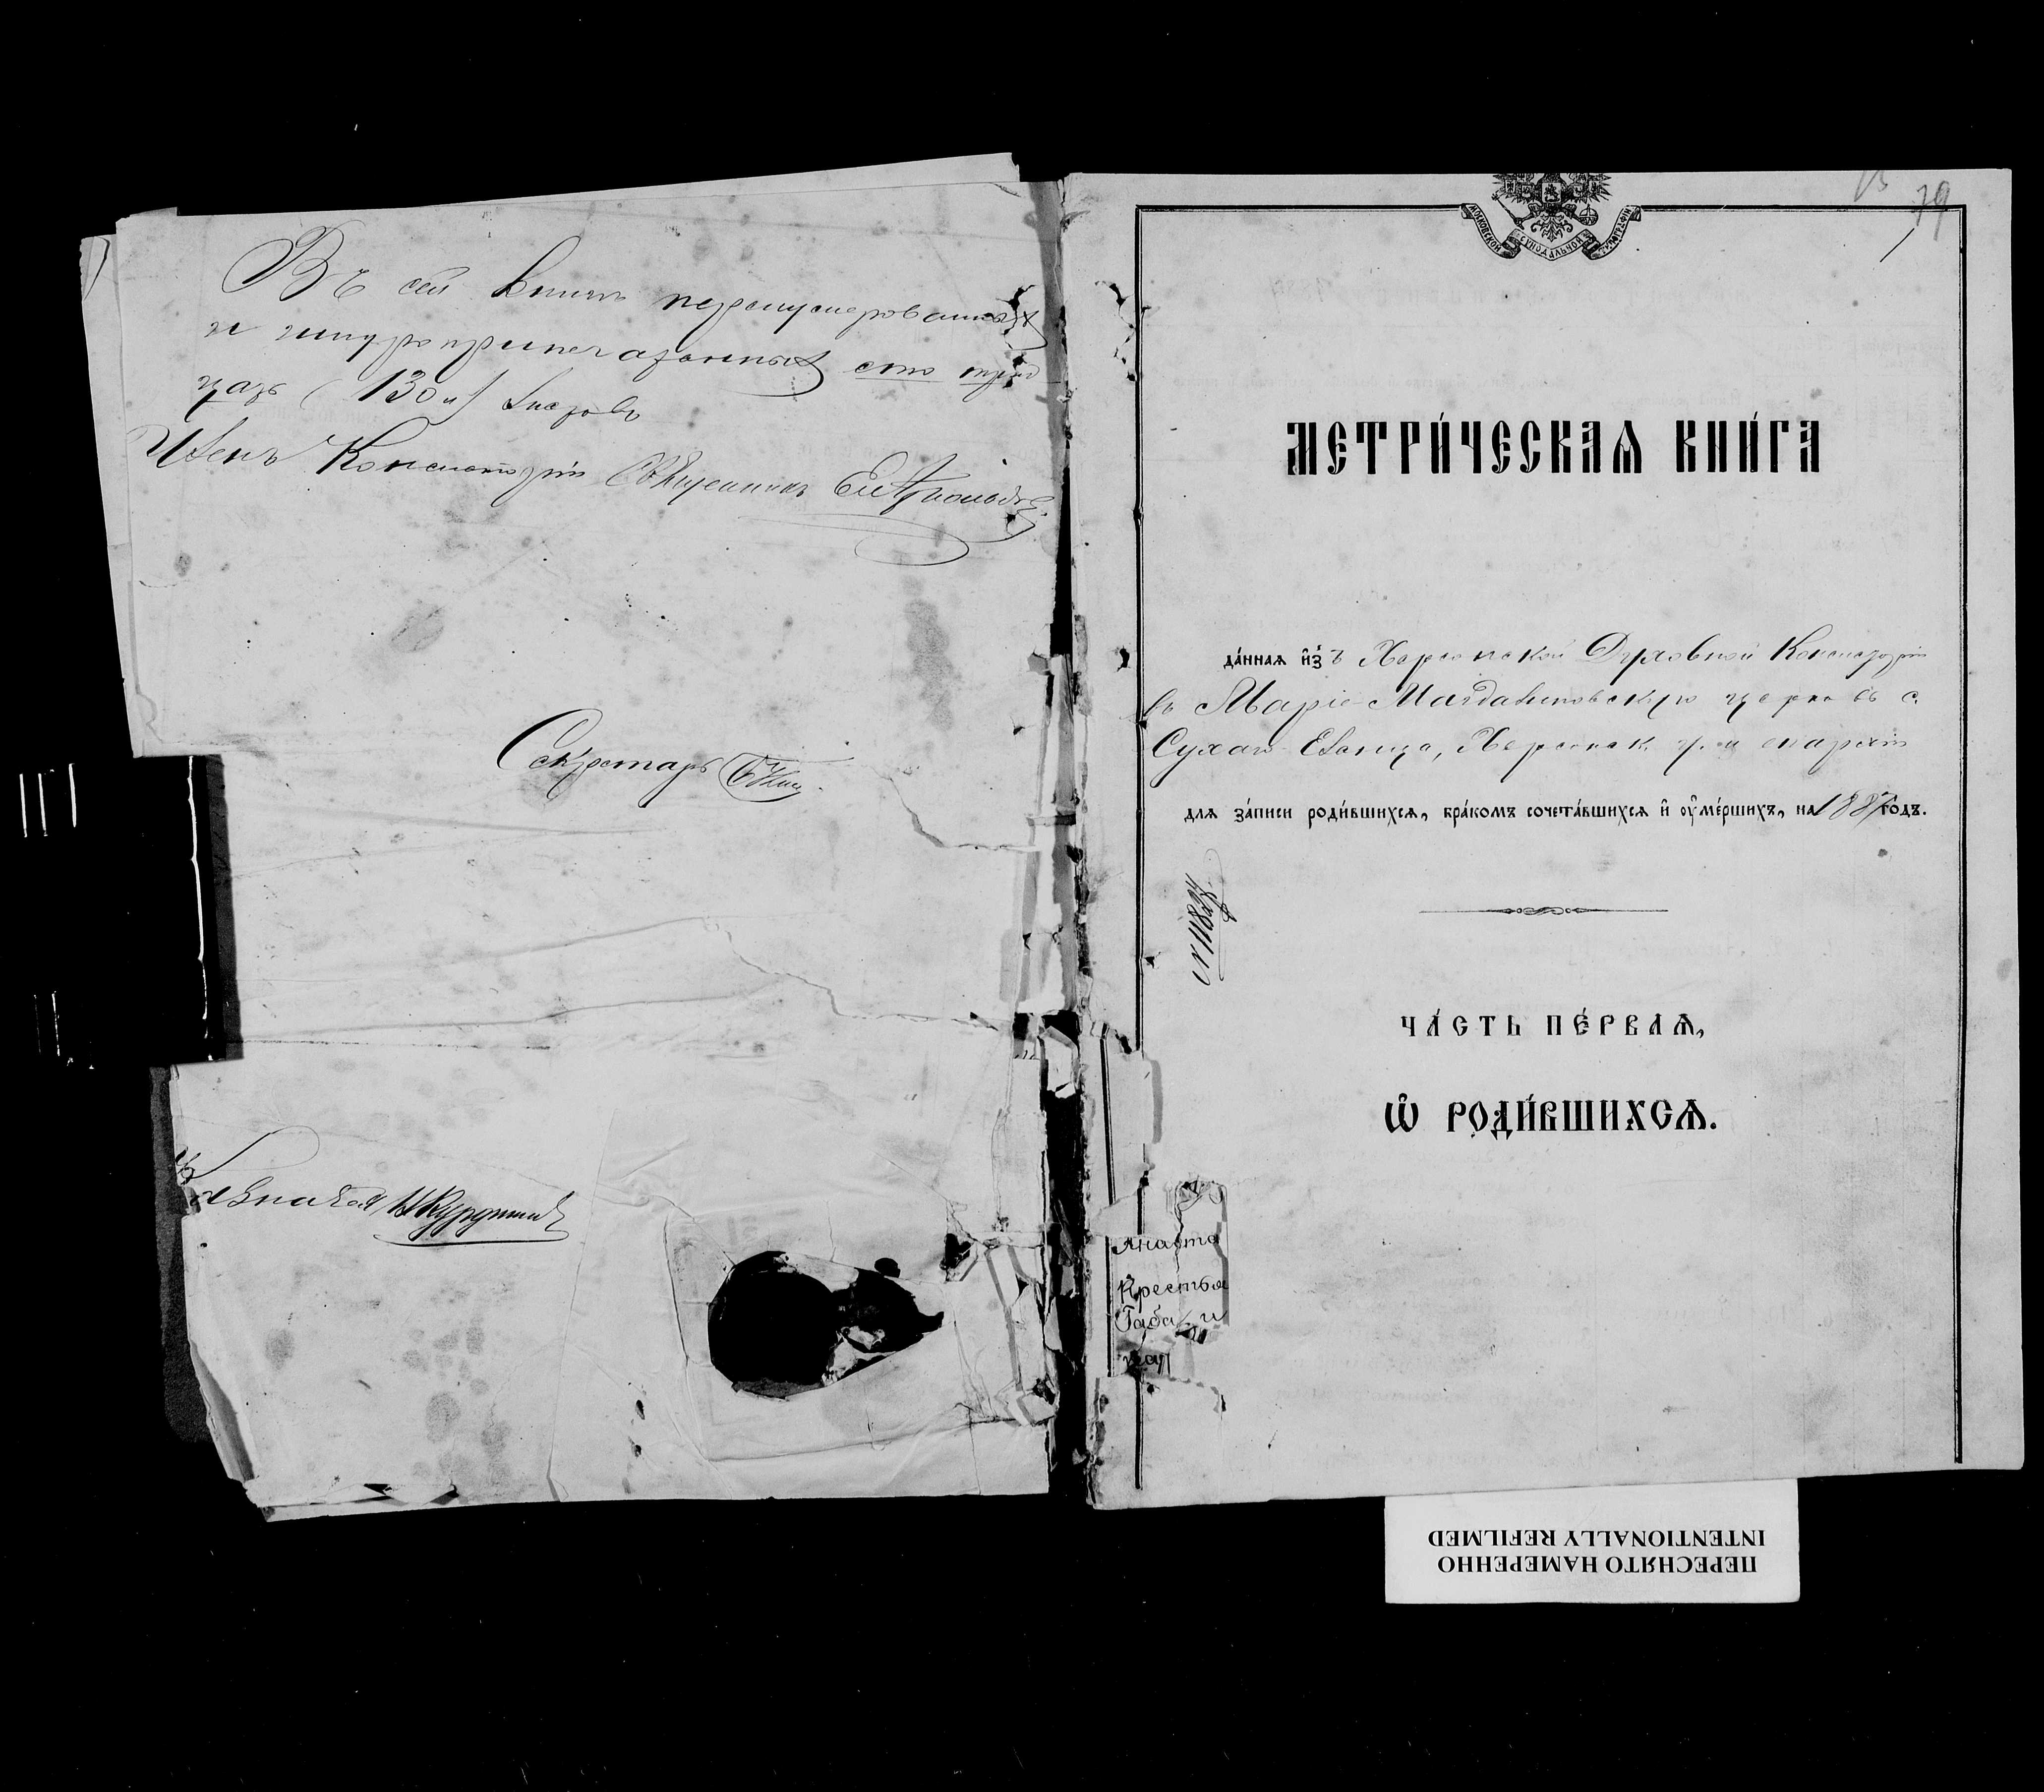 Въ сей книгѣ перенумерованныхъ
и шнуроприпечатанныхъ сто трид
цать (130 л) листовъ
Членъ Консисторіи Священникъ
Секретарь
МОСКОВСКОЙ СѴНОДАЛЬНОЙ ТИПОГРАФІИ
79
МЕТРИ́ЧЕСКАѦ КНИ́ГА
да́ннаѧ и҆́зъ Херсонской Духовной Консисторіи
въ Маріе-Магдалиновскую церковь с.
Сухаго Еланца, Херсонск. у. и епархіи
длѧ за́писи роди́вшихсѧ, бра́комъ сочета́вшихсѧ и҆ ᲂу҆ме́ршихъ, на 1887 го́дъ.
ЧА́СТЬ ПЕ́РВАѦ,
Ѡ҆ РОДИ́ВШИХСѦ.
Анаста
Крестья
ПЕРЕСНЯТО НАМЕРЕННО
INTENTIONALLY REFILMED